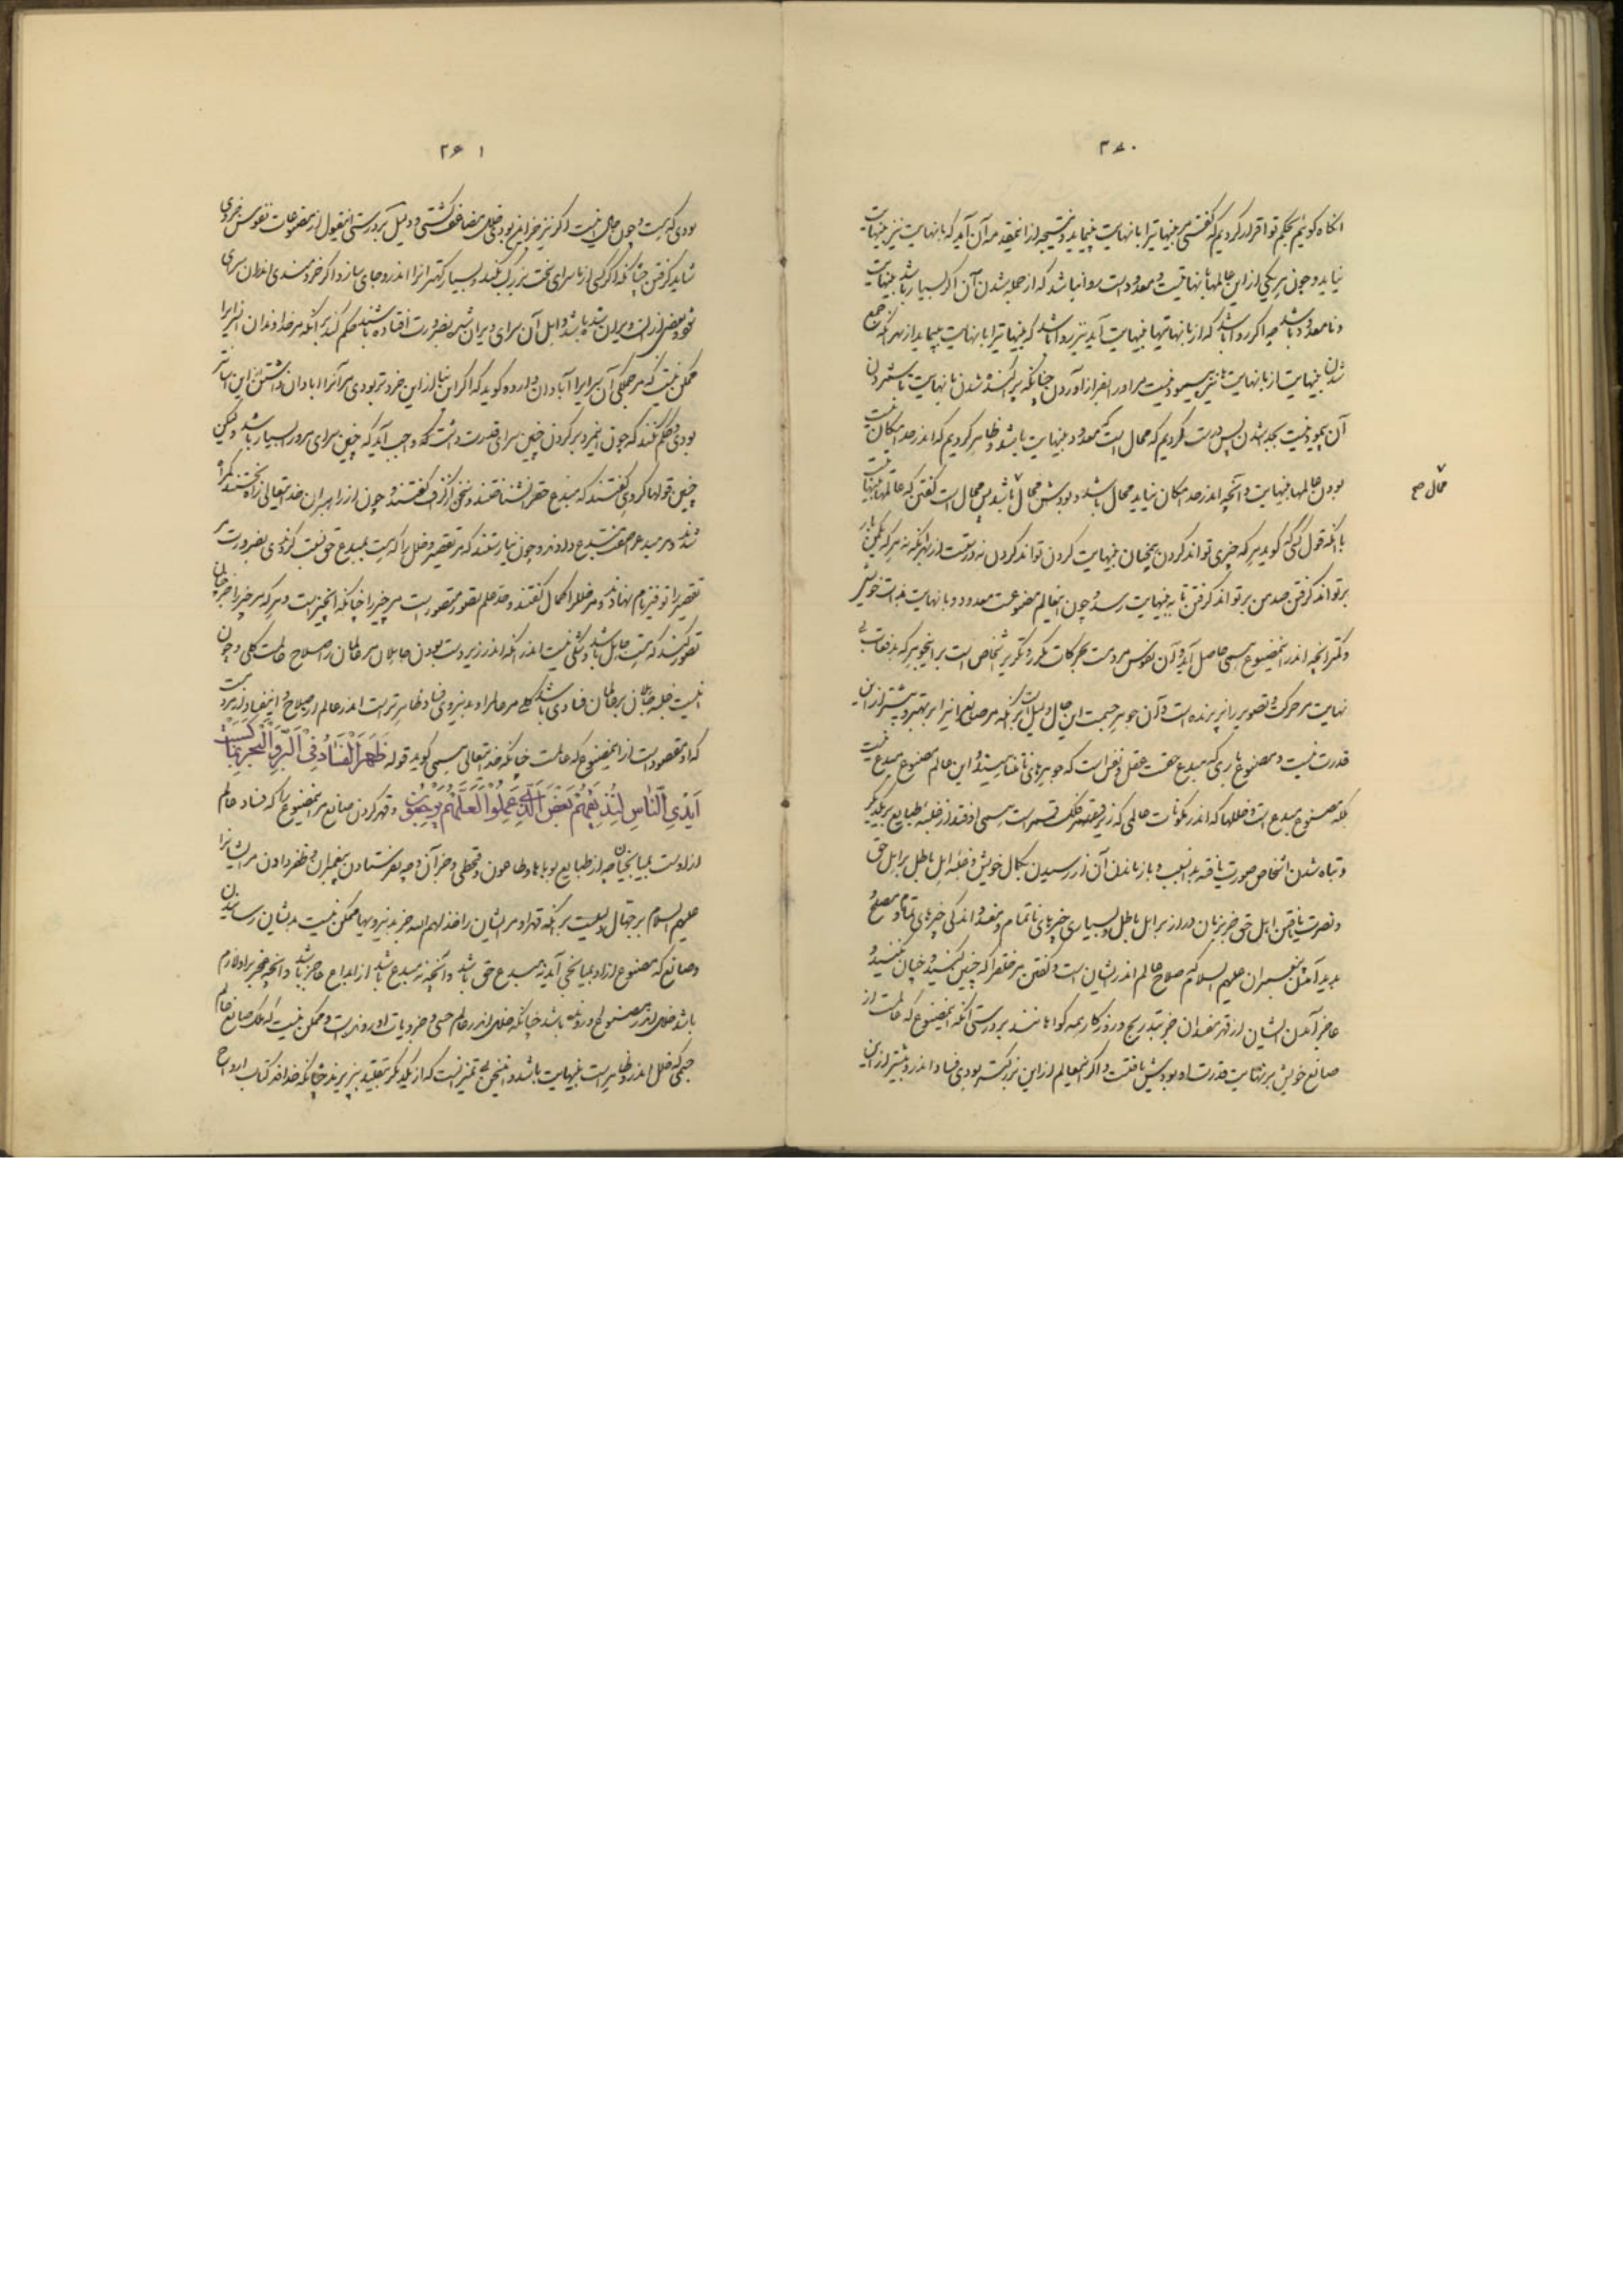 ۲۶۰
آنگاه گوئیم بحکم تو اقرار کردیم که گفتی مر بینهایت را با نهایت بپیماید و نتیجه از این مقدمه آن آید که با نهایت نیز بینهایت
نیاید و چون هر یکی از این عالمها با نهایتست و معدودست روا نباشد که از جمله شدن آن اگر بسیار باشد بینهایت
و نامعدود باشد چه اگر روا باشد که از با نهایتها بینهایت آید نیز روا باشد که بینهایت را با نهایت بپیماید از بهر آنکه جمع
شدن بینهایت از با نهایت نیز پیمودنیست مر او را و فراز آوردن چنانکه پراکنده شدن با نهایت شمردن
آن پیمودنیست بجد شدن پس درست کردیم که محال است که معدود بینهایت باشد و ظاهر کردیم که اندر حد امکان نیست
بودن عالمها بینهایت و آنچه اندر حد امکان نیاید محال باشد و بودش محال باشد پس محال است گفتن که عالمها بینهایت است
محال صح
با آنکه قول کسی که گوید هر که چیزی تواند کردن همچنان بینهایت کردن تواند کردن نه درست از بهر آنکه نه هر که یکمن بار
برتواند گرفتن صد من برتواند گرفتن تا به بینهایت رسد و چون این عالم مصنوعست معدود و با نهایت بذات خویش
و کمتر آنچه اندر این مصنوع همی حاصل آید و آن نفوس مردمست بحرکات مکرر و تکریر اشخاص است بر این جوهر که بدفعات بی
نهایت مر حرکت و تصویر را پذیرنده است و آن جوهر جسمست این حال دلیل است بر آنکه مر صانع را نیز بر بهتر و بیشتر از این
قدرت نیست و مصنوع باری که مبدع حقست عقل و نفس است که جوهرهای نامتناهیند و این عالم مصنوع مبدع نیست
بلکه مصنوع مبدع است و خللها که اندر مکونات عالمی که زیر فلک قمر است همی اوفتد از غلبه طبایع بر یکدیگر
و تباه شدن اشخاص صورت یافته بدان سبب و باز ماندن آن از رسیدن بکمال خویش و غلبه اهل باطل بر اهل حق
و نصرت یافتن اهل حق جز بزمان دراز بر اهل باطل و بسیاری چیزهای ناتمام و مفسد و اندکی چیزهای تمام و مصلح
پدید آمدن پیغمبران علیهم السلام که صلاح عالم اندر ایشان است و گفتن مر خلق را که چنین کنید و چنان نکنید و
عاجز آمدن ایشان از قهر مفسدان جز بتدریج و روزگار همه گواهانند بر درستی آنکه این مصنوع که عالمست از
صانع خویش بر نهایت قدرت او بودش یافتست و اگر این عالم از این بزرگتر بودی فساد اندرو بیشتر از این
۲۶۱
بودی که هست و چون حال اینست اگر نیز جز این بودی خلل مضاعف گشتی و دلیل بر درستی این قول از مصنوعات نفوس جزوی
شاید گرفتن چنانکه اگر کسی از ما سرای سخت بزرگ بکند و بسیار کهتران را اندرو جای سازد و اگر خردمندی اندران سرای
شود و بعضی از آن ویران شده باشد و اهل آن سرای ویران شده بضرورت افتاده باشند حکم کند بر آنکه مر خداوندان آن سرای را
ممکن نیست که مر جملگی آن سرای را آبادان دارد و گوید که اگر این بنا از این خردتر بودی مر آنرا آبادان داشتن این آسانتر
بودی و حکم نکند که چون این مرد بر کردن چنین سرای قدرت داشت واجب آید که چنین سرای مرو را بسیار باشد و لیکن
چنین قولها گروهی گفتند که مبدع حق را نشناختند و سخن از گزاف گفتند و چون از راهبران خدایتعالی راه نجستند گمراه
شدند و مر مبدع را صفت مبتدع دادند و چون نیارستند که مر تقصیر و خلل را که هست بمبدع حق نسبت کردندی بضرورت مر
تقصیر را توفیر نام نهادند و مر خلل را کمال گفتند و حد علم تصور متصور است مر چیز را چنانکه آن چیز است و هر که مر چیز را جز چنان
تصور کند که هست جاهل باشد و شکی نیست اندر آنکه اندر زیر دست بودن جاهلان مر عالمان را صلاح عالمست کلی و چون
اینست غلبه جاهلان بر عالمان فسادی باشد کلی مر عالم را و بدین روی فساد ظاهرتر است اندر عالم از صلاح و این فساد از مردست
که او مقصود است از این مصنوع که عالمست چنانکه خدایتعالی همی گوید قوله ظَهَرَ الْفَسَادُ فِي الْبَرِّ وَالْبَحْرِ بِمَا كَسَبَتْ
أَيْدِي النَّاسِ لِيُذِيقَهُمْ بَعْضَ الَّذِي عَمِلُوا لَعَلَّهُمْ يَرْجِعُونَ و قهر کردن صانع مر این مصنوع را که فساد عالم
از اوست بمیانجیان چه از طبایع بوباها و طاعون و قحطی و جز آن و چه بفرستادن پیغمبران و ظفر دادن مر ایشانرا
علیهم السلام بر جهال دلیلست بر آنکه قهر او مر ایشان را خذلهم الله جز بدین رویها ممکن نیست بدیشان رسانیدن
و صانع که مصنوع از او بمیانجی آید نه مبدع حق باشد و آنچه نه مبدع باشد از ابداع عاجز باشد و آنچه عجز بر او لازم
باشد خلل اندر مصنوع او رونده باشد چنانکه خلل اندر عالم حسی و جزویات او رونده است و ممکن نیست که ملک صانع عالم
جسمی که خلل اندرو ظاهر است بینهایت باشد و این سخن بی تمیزانست که از یکدیگر بتقلید پذیرند چنانکه خداوند کتاب ارواح